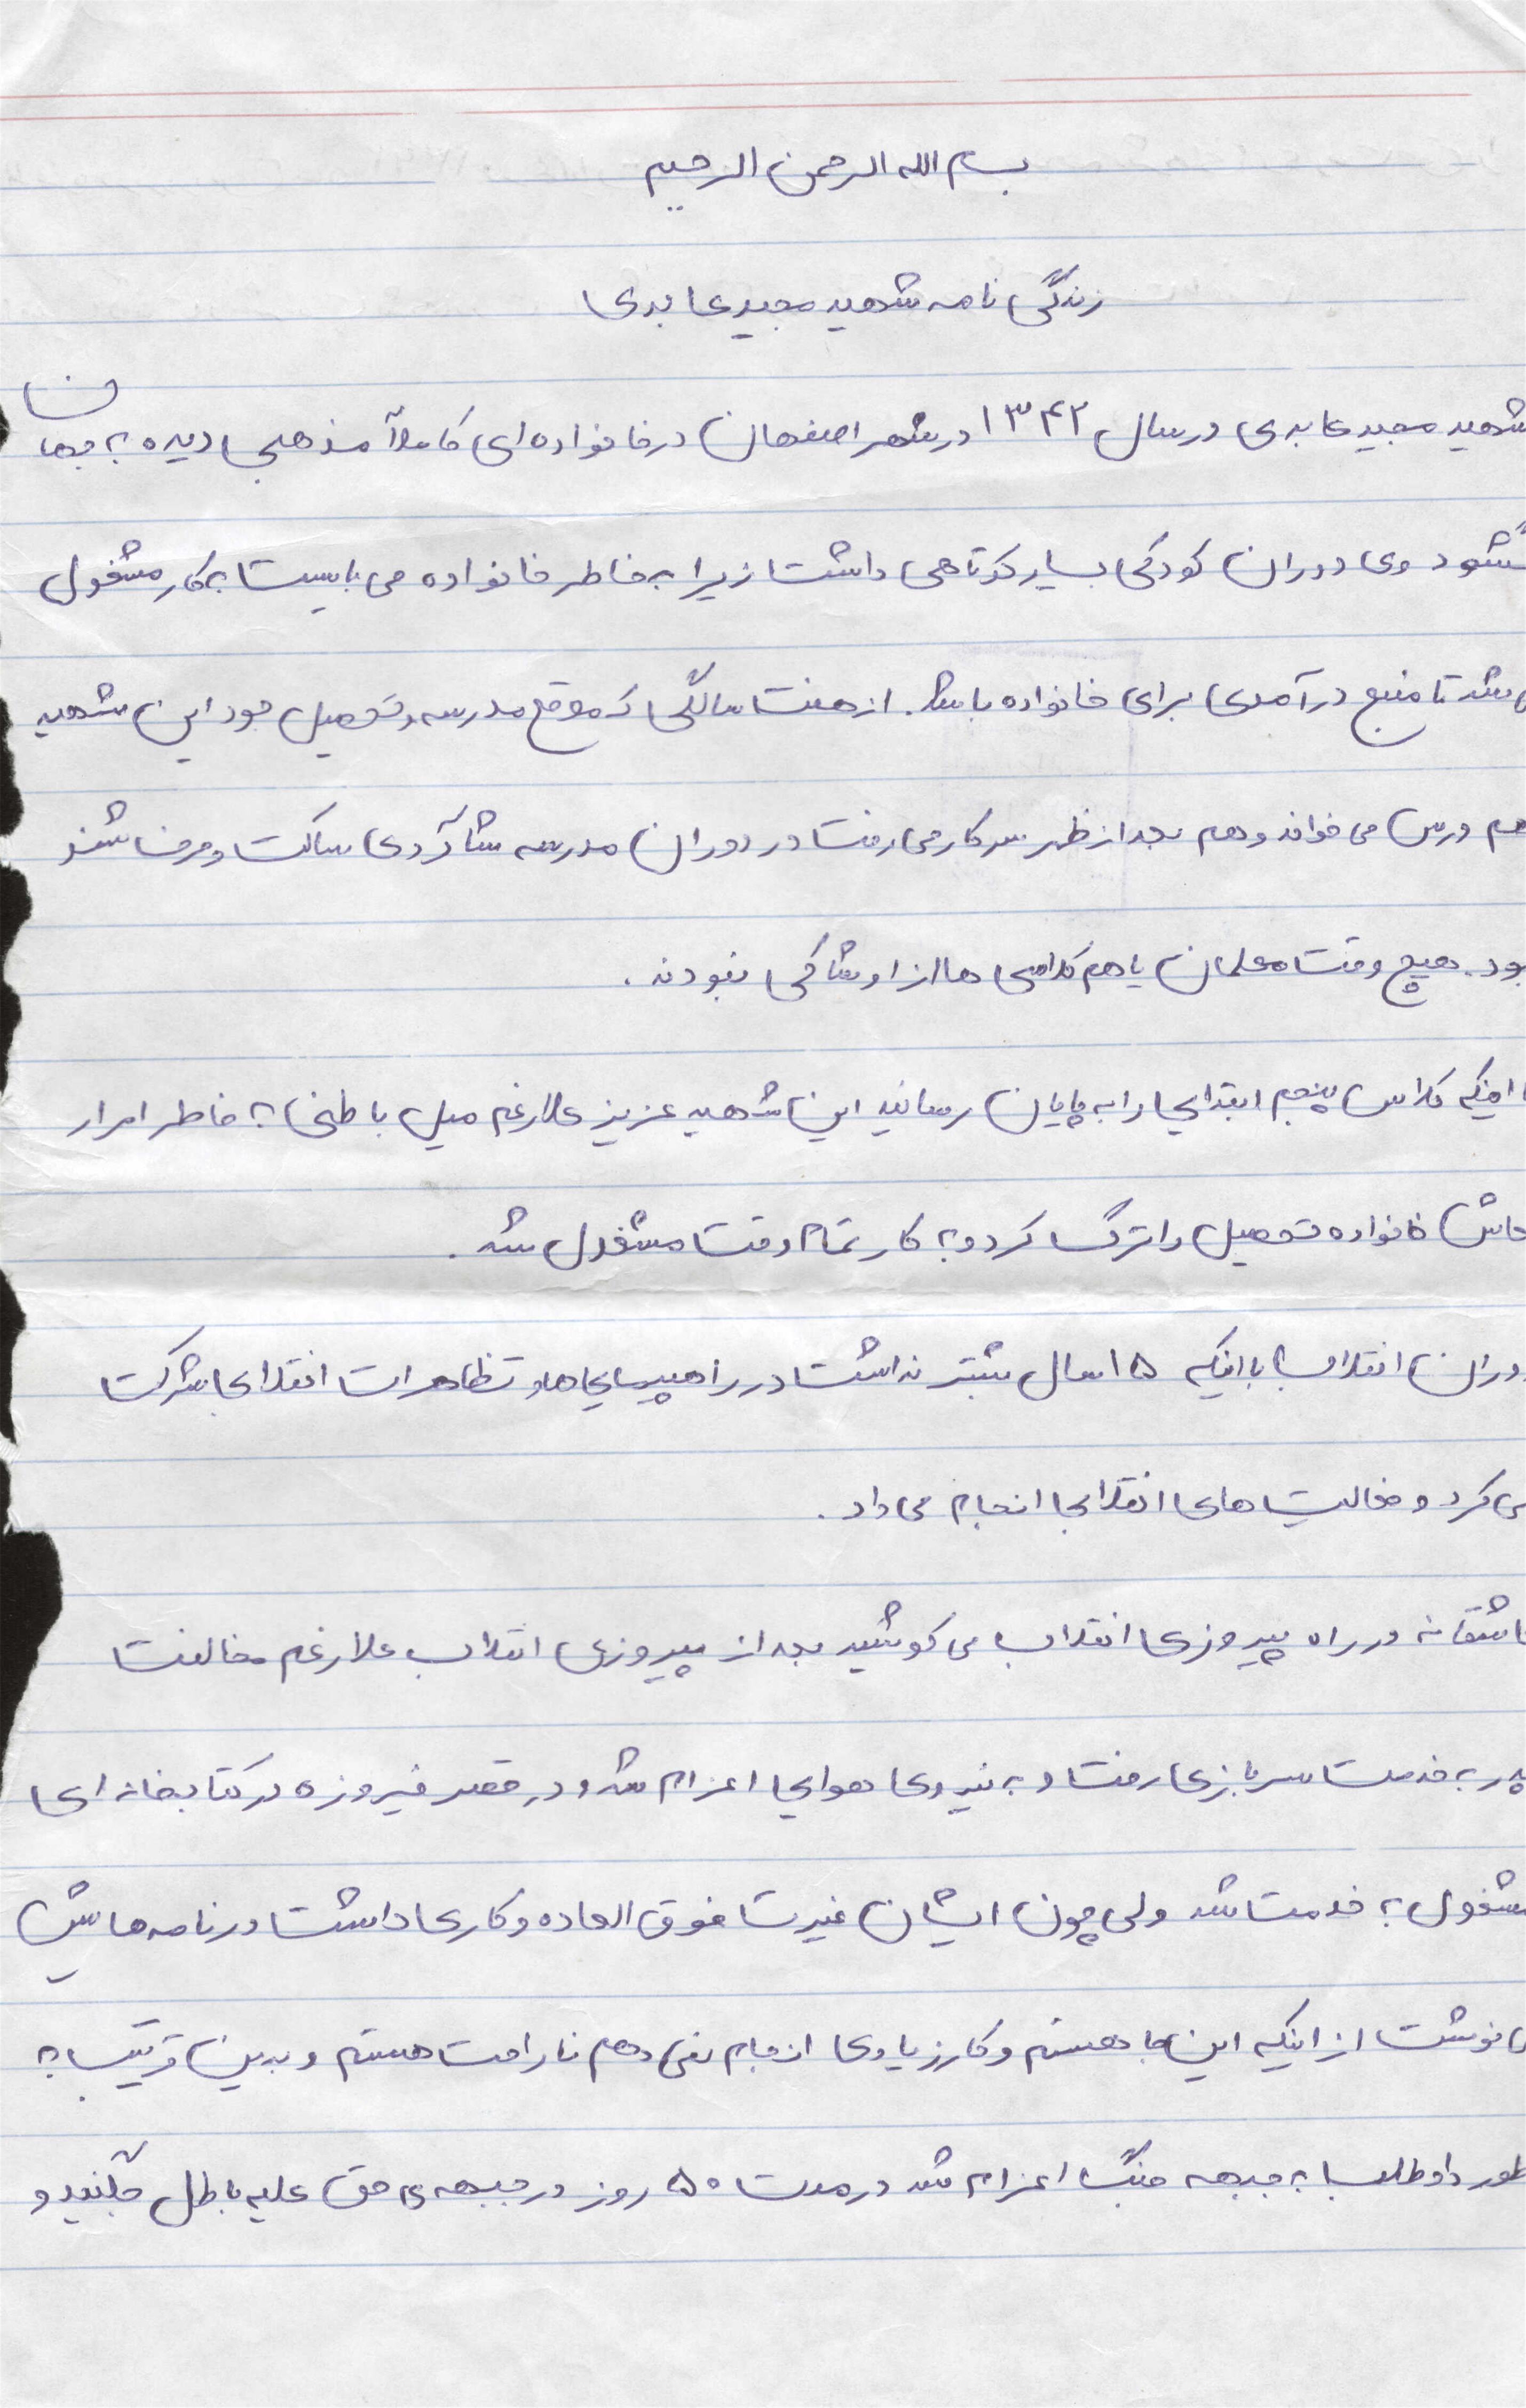 بسم الله الرحمن الرحیم
زندگی نامه شهید مجید عابدی
شهید مجید عابدی در سال ۱۳۴۲ در شهر اصفهان در خانواده‌ای کاملاً مذهبی دیده به جهان
گشود وی دوران کودکی بسیار کوتاهی داشت زیرا به خاطر خانواده می بایست به کار مشغول
می شد تا منبع درآمدی برای خانواده باشد. از هفت سالگی که موقع مدرسه و تحصیل بود این شهید
هم درس می خواند و هم بعد از ظهر سر کار می رفت در دوران مدرسه شاگردی ساکت و حرف شنو
بود. هیچ وقت معلمان یا هم کلاسی ها از او شاکی نبودند.
اینکه کلاس پنجم ابتدایی را به پایان رسانید این شهید عزیز علارغم میل باطنی به خاطر امرار
معاش خانواده تحصیل را ترک کرد و به کار تمام وقت مشغول شد.
دوران انقلاب با اینکه ۱۵ سال بیشتر نداشت در راهپیمایی ها و تظاهرات انقلابی شرکت
می کرد و فعالیت های انقلابی انجام می داد.
عاشقانه در راه پیروزی انقلاب می کوشید بعد از پیروزی انقلاب علارغم مخالفت
پدر به خدمت سربازی رفت و به نیروی هوایی اعزام شد و در قصر فیروزه در کتابخانه ای
مشغول به خدمت شد ولی چون ایشان غیرت فوق العاده و کاری داشت در نامه هایش
می نوشت از اینکه این جا هستم و کار زیادی انجام نمی دهم ناراحت هستم و بدین ترتیب به
طور داوطلب به جبهه جنگ اعزام شد در مدت ۵۰ روز در جبهه ی حق علیه باطل جنگید و